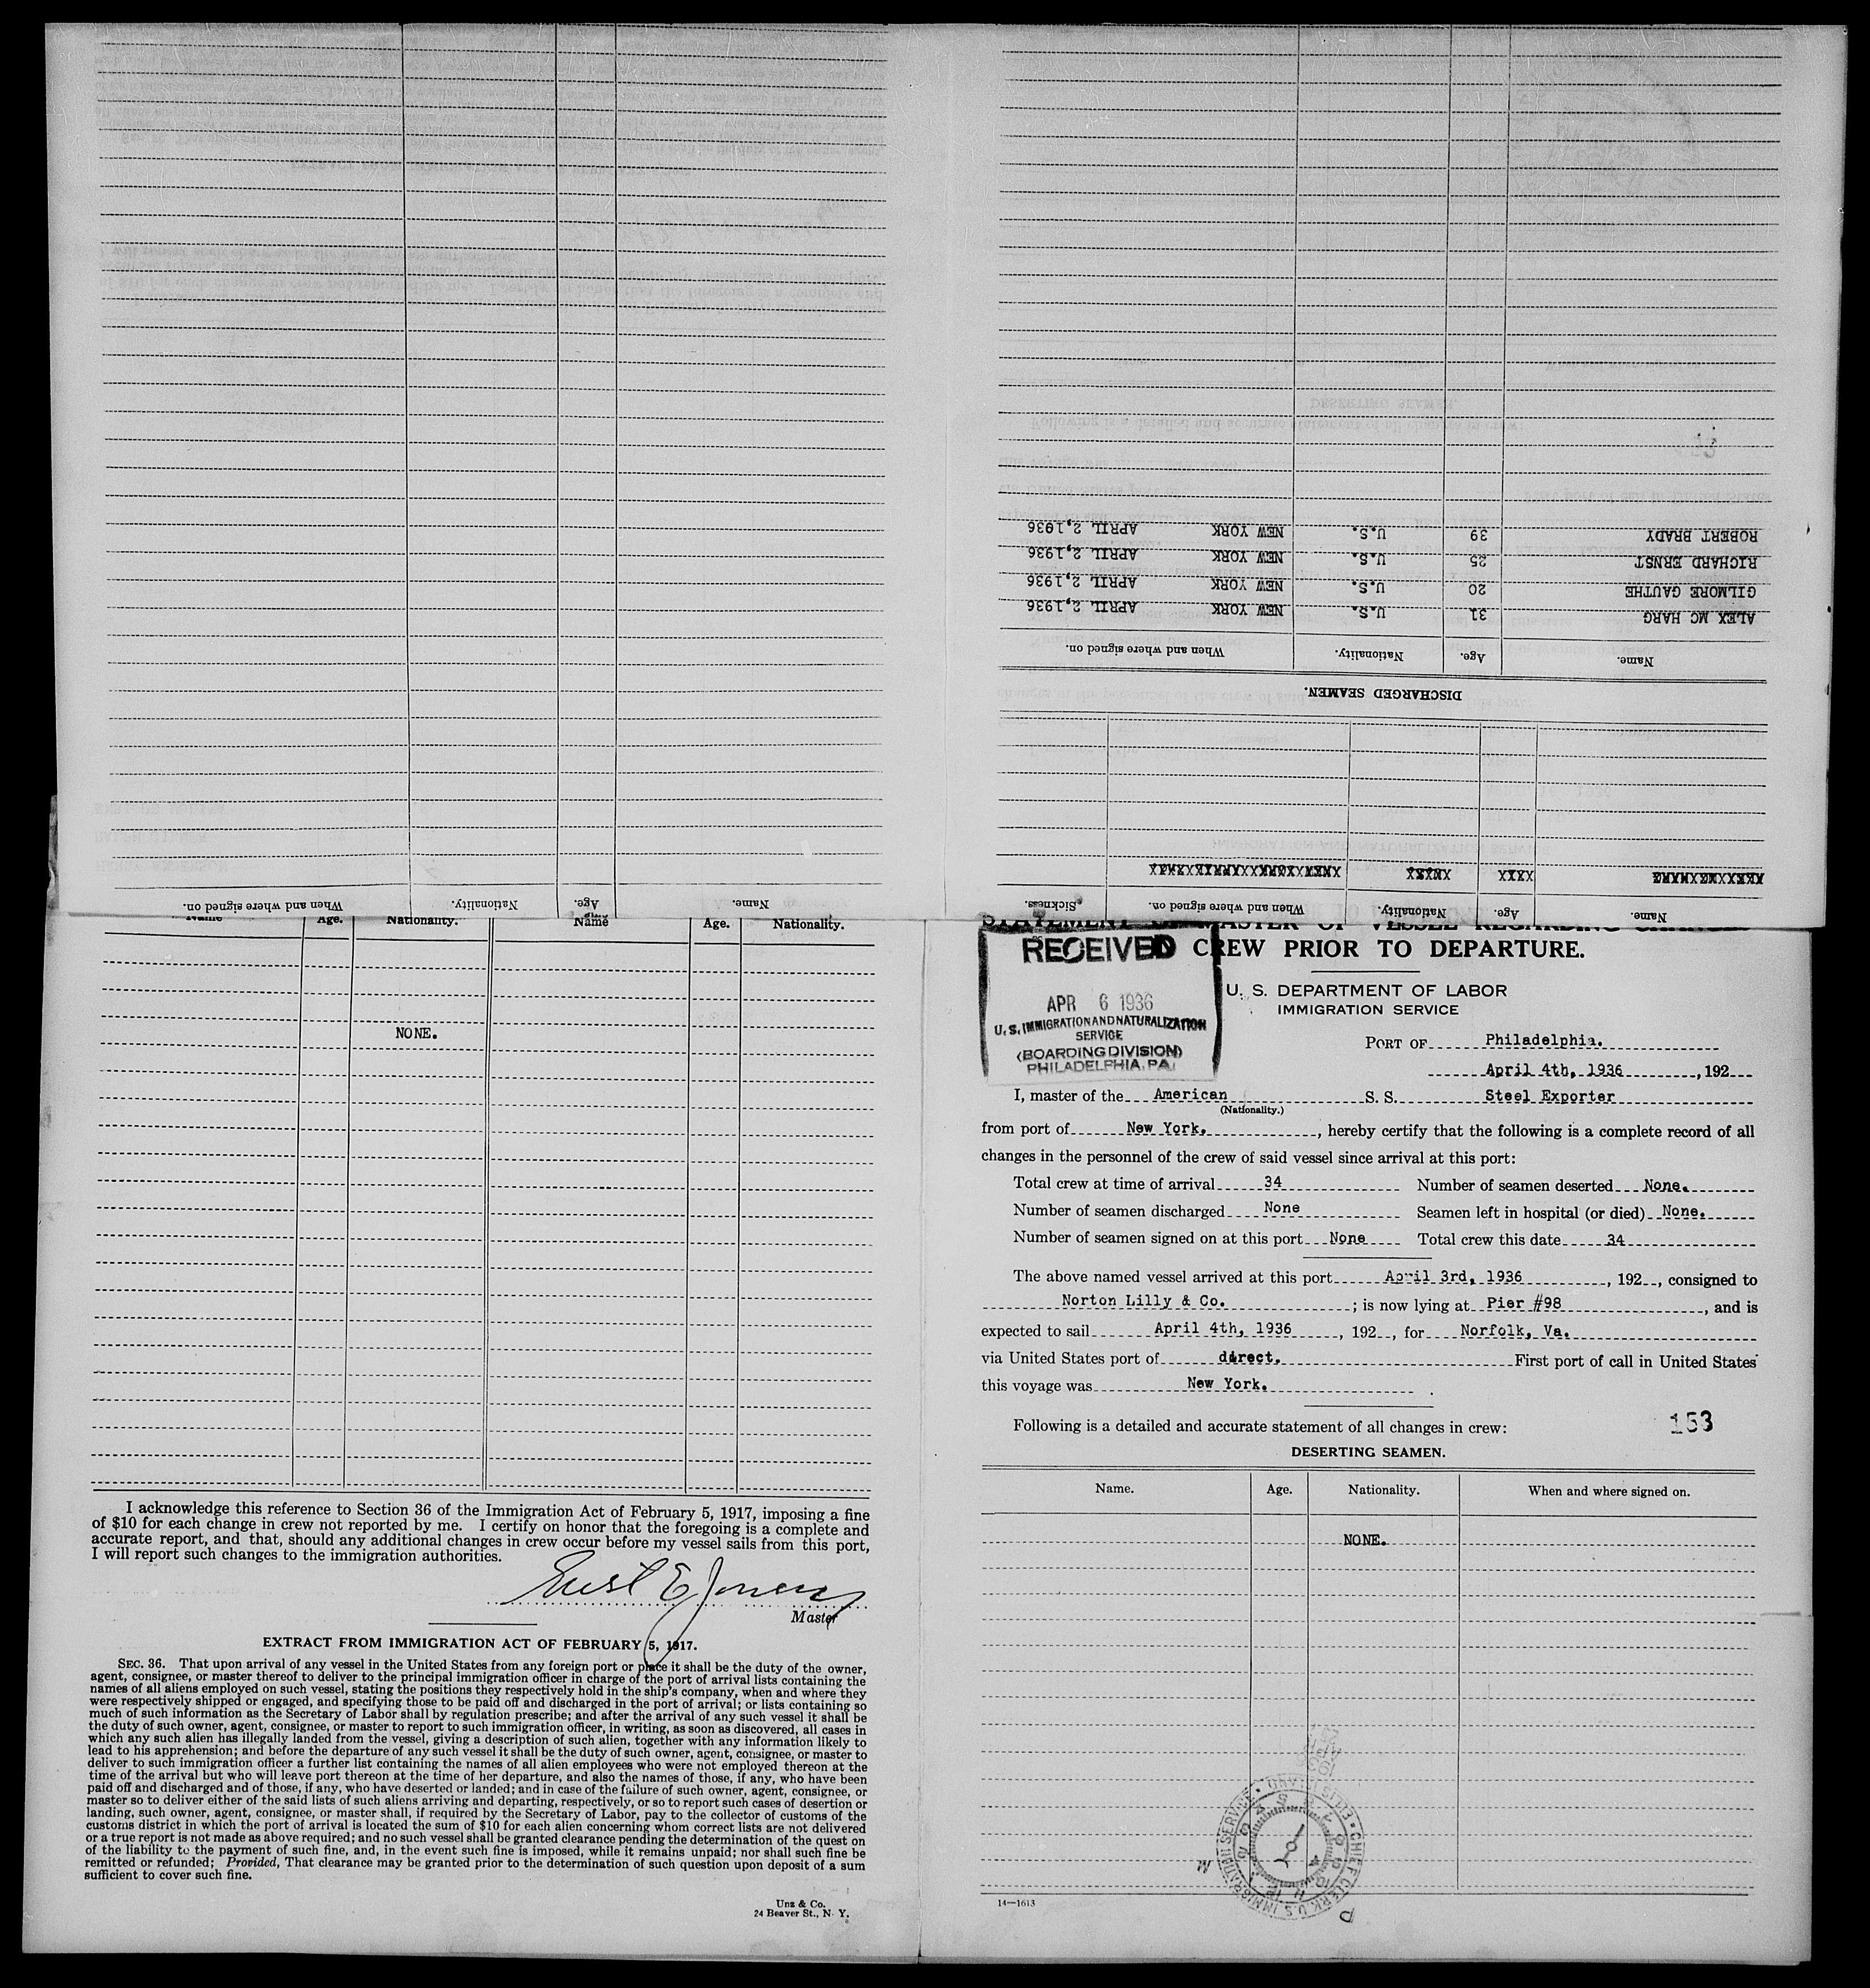 Name. Age. Nationality. When and where signed on.
Name. Age. Nationality. When and where signed on. Sickness.
DISCHARGED SEAMEN.
Name. Age. Nationality. When and where signed on.
ALEX MC HARG 31 U.S. NEW YORK APRIL 2, 1936
GILMORE GAUTHE 20 U.S. NEW YORK APRIL 2, 1936
RICHARD ERNST 25 U.S. NEW YORK APRIL 2, 1936
ROBERT BRADY 39 U.S. NEW YORK APRIL 2, 1936
Name Age. Nationality. Name Age. Nationality.
NONE.
I acknowledge this reference to Section 36 of the Immigration Act of February 5, 1917, imposing a fine
of $10 for each change in crew not reported by me. I certify on honor that the foregoing is a complete and
accurate report, and that, should any additional changes in crew occur before my vessel sails from this port,
I will report such changes to the immigration authorities.
Master
EXTRACT FROM IMMIGRATION ACT OF FEBRUARY 5, 1917.
SEC. 36. That upon arrival of any vessel in the United States from any foreign port or place it shall be the duty of the owner,
agent, consignee, or master thereof to deliver to the principal immigration officer in charge of the port of arrival lists containing the
names of all aliens employed on such vessel, stating the positions they respectively hold in the ship's company, when and where they
were respectively shipped or engaged, and specifying those to be paid off and discharged in the port of arrival; or lists containing so
much of such information as the Secretary of Labor shall by regulation prescribe; and after the arrival of any such vessel it shall be
the duty of such owner, agent, consignee, or master to report to such immigration officer, in writing, as soon as discovered, all cases in
which any such alien has illegally landed from the vessel, giving a description of such alien, together with any information likely to
lead to his apprehension; and before the departure of any such vessel it shall be the duty of such owner, agent, consignee, or master to
deliver to such immigration officer a further list containing the names of all alien employees who were not employed thereon at the
time of the arrival but who will leave port thereon at the time of her departure, and also the names of those, if any, who have been
paid off and discharged and of those, if any, who have deserted or landed; and in case of the failure of such owner, agent, consignee, or
master so to deliver either of the said lists of such aliens arriving and departing, respectively, or so to report such cases of desertion or
landing, such owner, agent, consignee, or master shall, if required by the Secretary of Labor, pay to the collector of customs of the
customs district in which the port of arrival is located the sum of $10 for each alien concerning whom correct lists are not delivered
or a true report is not made as above required; and no such vessel shall be granted clearance pending the determination of the quest on
of the liability to the payment of such fine, and, in the event such fine is imposed, while it remains unpaid; nor shall such fine be
remitted or refunded; Provided, That clearance may be granted prior to the determination of such question upon deposit of a sum
sufficient to cover such fine.
Unz & Co.
24 Beaver St., N. Y.
STATEMENT OF MASTER OF VESSEL REGARDING CHANGES
CREW PRIOR TO DEPARTURE.
RECEIVED
APR 6 1936
U. S. IMMIGRATION AND NATURALIZATION
SERVICE
(BOARDING DIVISION)
PHILADELPHIA, PA.
U. S. DEPARTMENT OF LABOR
IMMIGRATION SERVICE
PORT OF Philadelphia.
April 4th, 1936, 192
I, master of the American S. S. Steel Exporter
(Nationality.)
from port of New York, , hereby certify that the following is a complete record of all
changes in the personnel of the crew of said vessel since arrival at this port:
Total crew at time of arrival 34 Number of seamen deserted None.
Number of seamen discharged None Seamen left in hospital (or died) None.
Number of seamen signed on at this port None Total crew this date 34
The above named vessel arrived at this port April 3rd, 1936, 192 , consigned to
Norton Lilly & Co. ; is now lying at Pier #98 , and is
expected to sail April 4th, 1936, 192 , for Norfolk, Va.
via United States port of direct. First port of call in United States
this voyage was New York.
Following is a detailed and accurate statement of all changes in crew: 153
DESERTING SEAMEN.
Name. Age. Nationality. When and where signed on.
NONE.
CHIEF CLERK U.S. IMMIGRATION SERVICE • ELLIS ISLAND •
14—1613